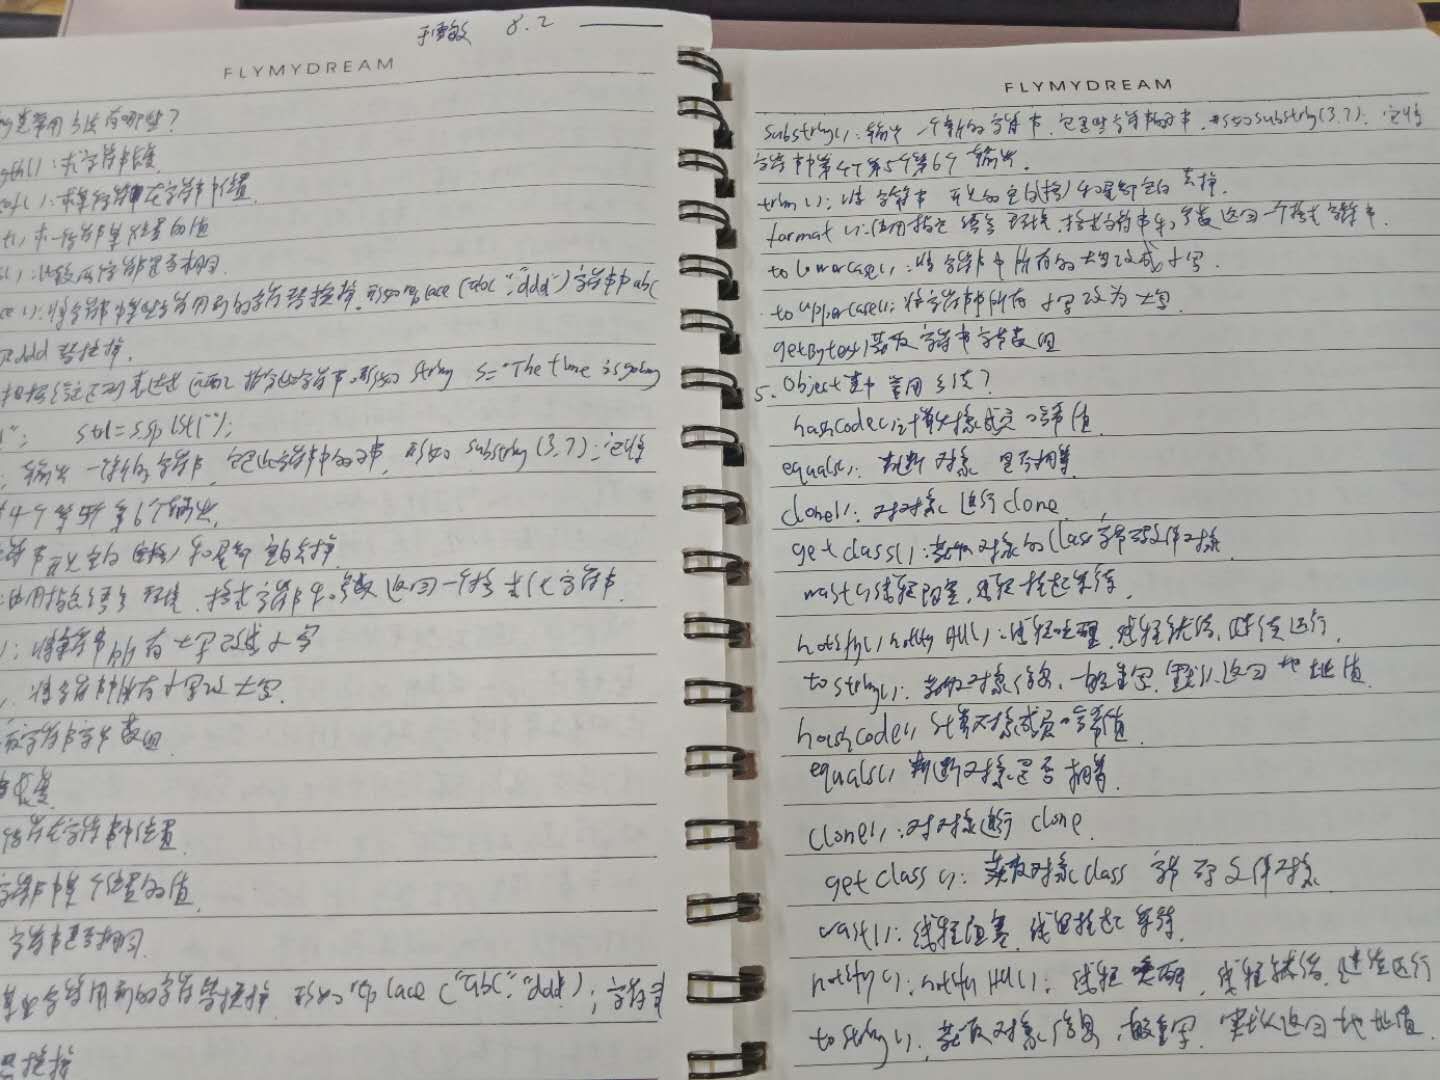 8.2
FLYMYDREAM
常用方法有哪些?
gth():求字符串长度
字符串位置
的值
():比较两个字符串是否相同
ce():将字符串中某些字符用新的字符替换掉,形如replace("abc","ddd")字符串中abc
ddd替换掉.
指定的字符串,形如 String s="The time is going
"; str1=s.split(" ");
输出一个新的字符串,包里此字符串中的子串,形如 substring(3,7);它将
4个第5个第6个输出.
和尾部空白去掉
使用指定语言环境,格式字符串和参数返回一个格式化字符串.
():将字符串中所有大写改成小写
将字符串中所有小写改为大写.
字符串字节数组
长度
在字符串中位置
字符串中某个位置的值
字符串是否相同
字符用新的字符替换掉 形如replace("abc","ddd");字符串
替换掉
FLYMYDREAM
substring():输出一个新的字符串,包里此字符串的子串,形如substring(3,7).它将
字符串中第4个第5个第6个输出.
trim():将字符串开头的空白(格)和尾部空白去掉.
format():使用指定语言环境,格式字符串和参数返回一个格式字符串.
toLowercase():将字符串中所有的大写改成小写.
toUppercase():将字符串中所有小写改为大写.
getBytes()获取字符串字节数组
5.Object类中常用方法?
hashcode():计算对象成员哈希值
equals():判断对象是否相等
clone():对对象进行clone
getclass():获取对象的Class字节码文件对象
wait():线程阻塞,线程挂起等待
notify(),notifyAll():线程唤醒,线程就绪,继续运行.
toString():获取对象信息,一般重写,默认返回地址值
hashcode():计算对象成员哈希值
equals():判断对象是否相等
clone():对对象进行clone
getclass():获取对象class字节码文件对象
wait():线程阻塞,线程挂起等待
notify():notifyAll():线程唤醒,线程就绪,继续运行
toString():获取对象信息,一般重写,默认返回地址值